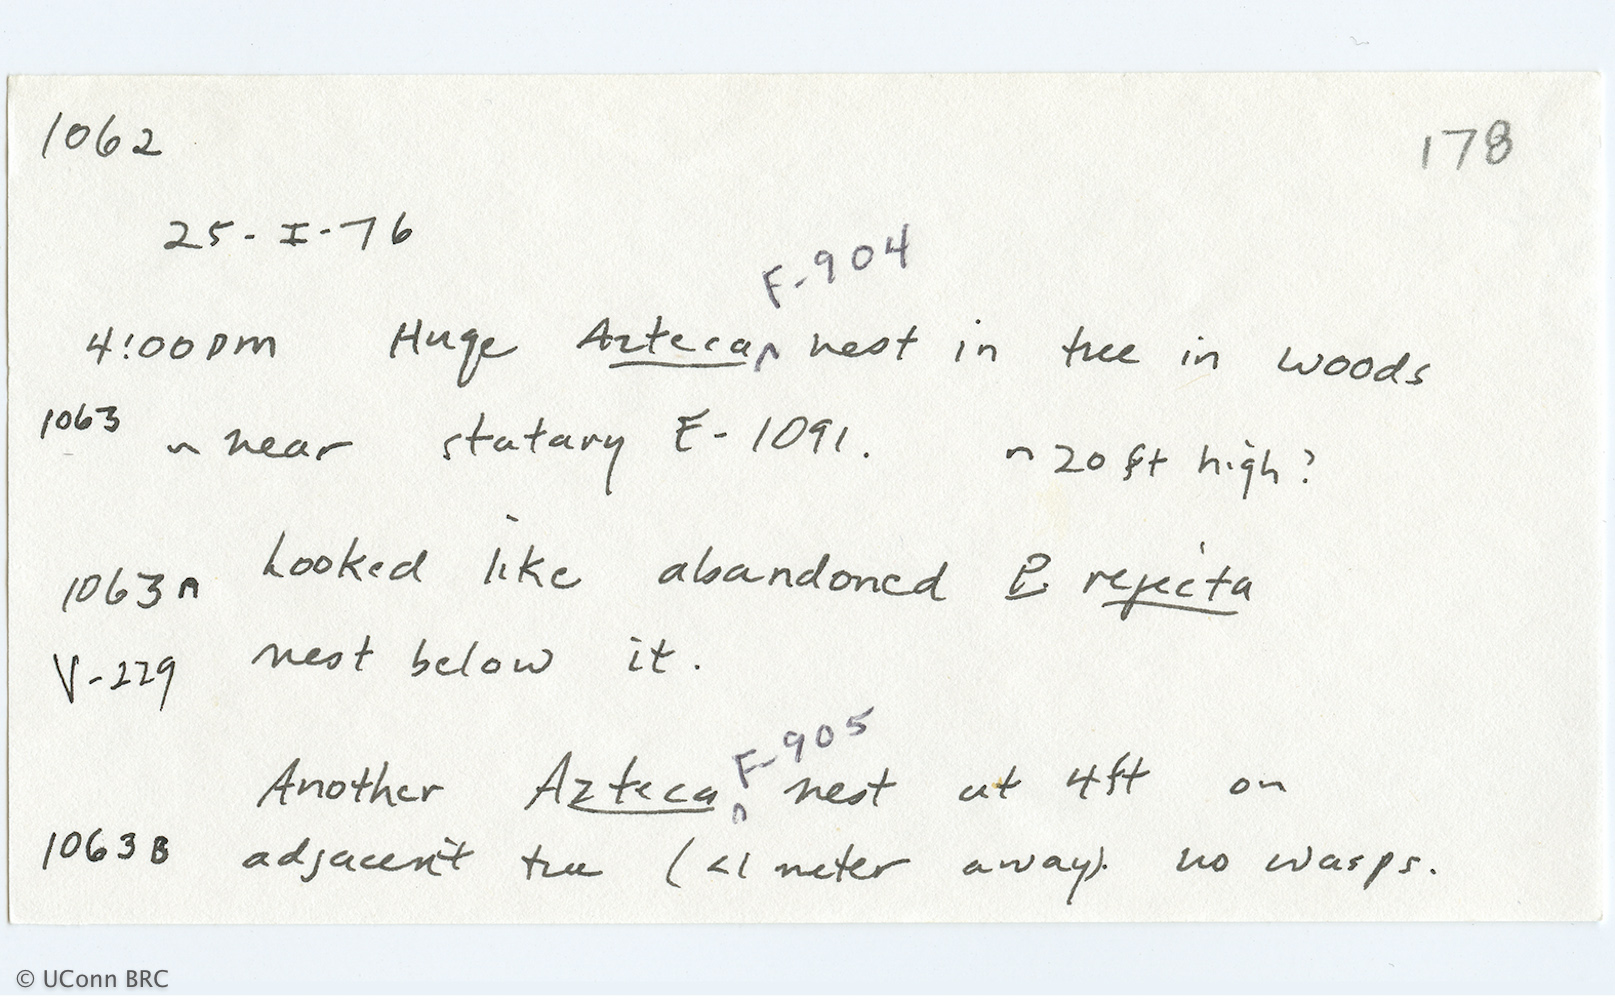 1062
178
25-I-76
F-904
4:00pm Huge Azteca ^ nest in tree in woods
1063 ~ near statary E-1091. ~ 20 ft high?
1063A Looked like abandoned P. rejecta
V-229 nest below it.
F-905
Another Azteca ^ nest at 4ft on
1063B adjacent tree (<1 meter away). no wasps.
© UConn BRC